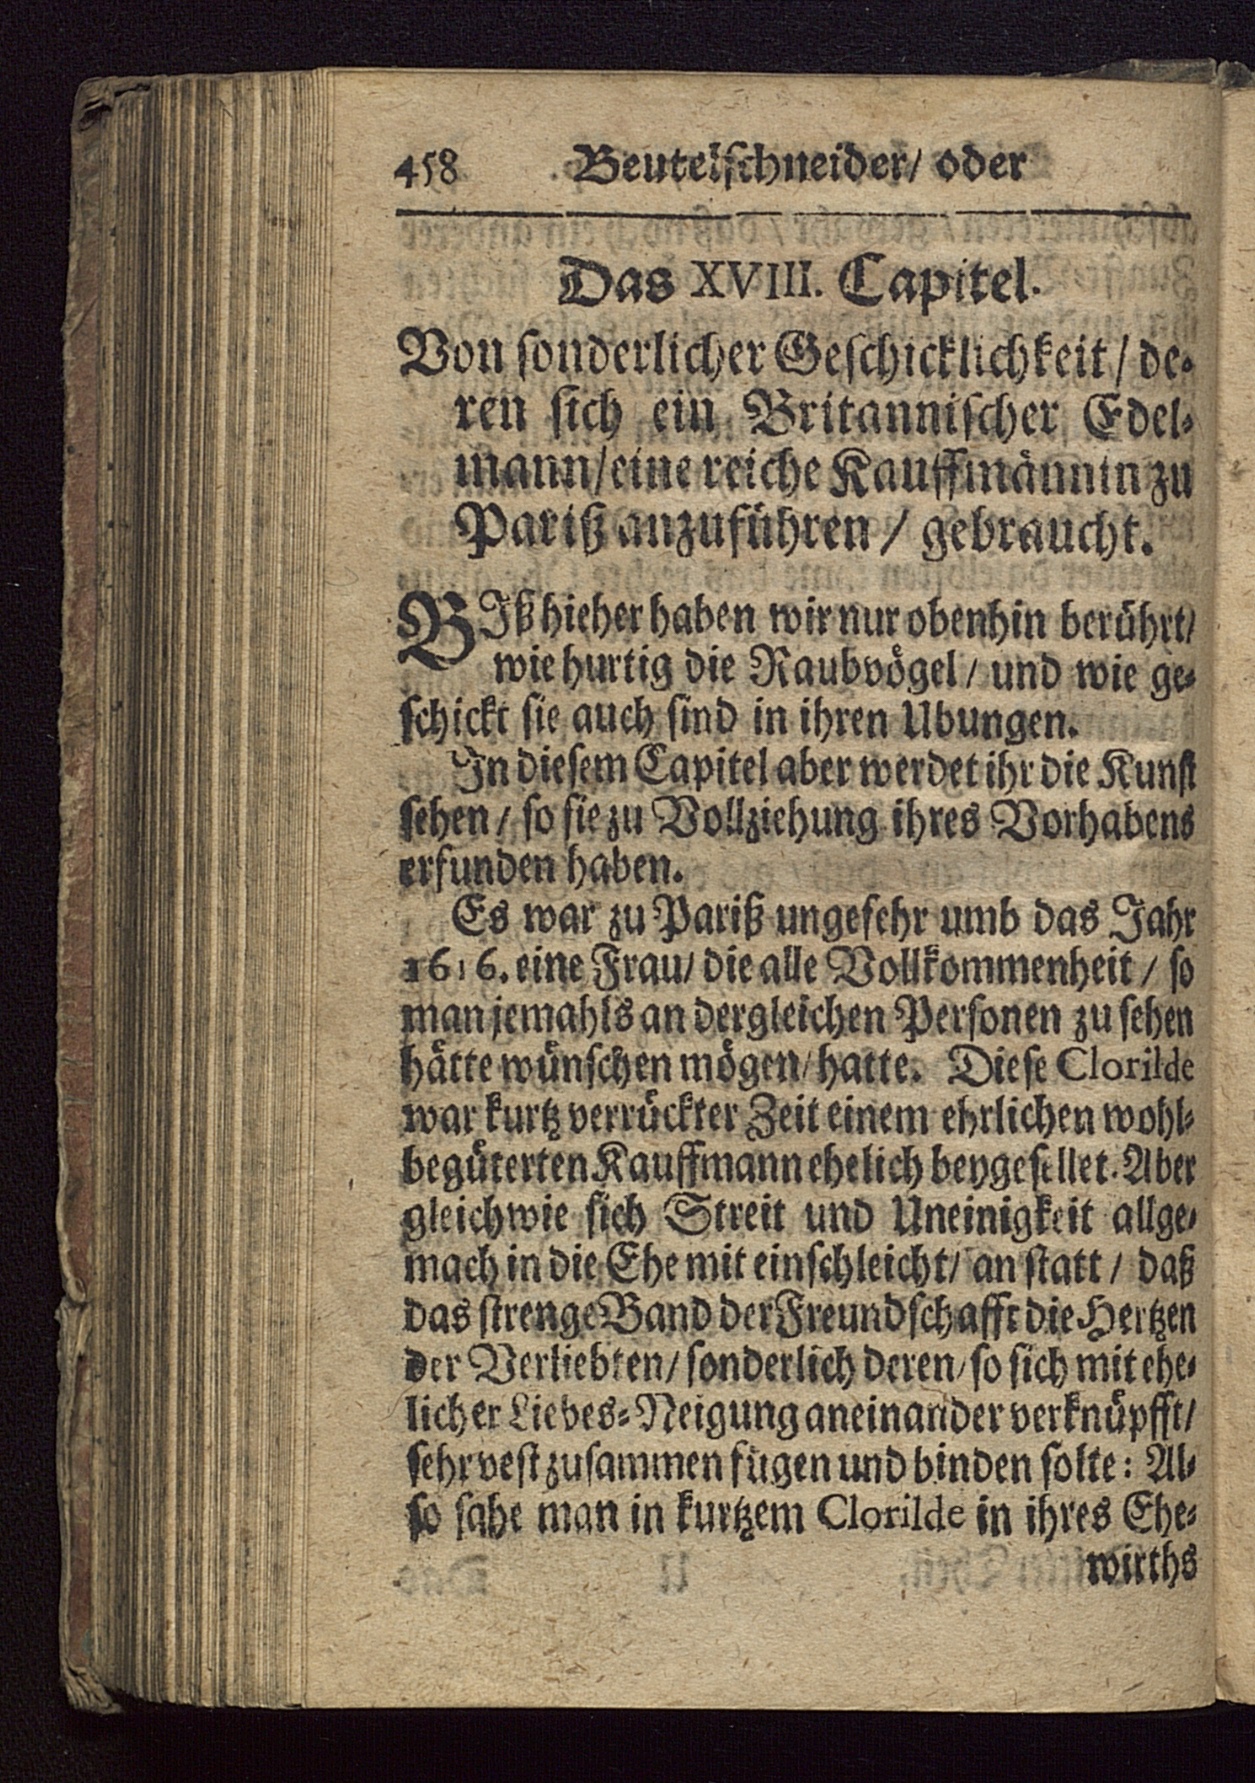 458 Beutelschneider/ oder
Das XVIII. Capitel.
Von sonderlicher Geschicklichkeit/ de-
ren sich ein Britannischer Edel-
mann/ eine reiche Kauffmännin zu
Pariß anzuführen/ gebraucht.
BIß hieher haben wir nur obenhin berührt/
wie hurtig die Raubvögel/ und wie ge-
schickt sie auch sind in ihren Ubungen.
In diesem Capitel aber werdet ihr die Kunst
sehen/ so sie zu Vollziehung ihres Vorhabens
erfunden haben.
Es war zu Pariß ungefehr umb das Jahr
1616. eine Frau/ die alle Vollkommenheit/ so
man jemahls an dergleichen Personen zu sehen
hätte wünschen mögen/ hatte. Diese Clorilde
war kurtz verrückter Zeit einem ehrlichen wohl-
begüterten Kauffmann ehelich beygesellet. Aber
gleichwie sich Streit und Uneinigkeit allge-
mach in die Ehe mit einschleicht/ an statt/ daß
das strenge Band der Freundschafft die Hertzen
der Verliebten/ sonderlich deren/ so sich mit ehe-
licher Liebes-Neigung aneinander verknüpfft/
sehr vest zusammen fügen und binden solte: Al-
so sahe man in kurtzem Clorilde in ihres Ehe-
wirths